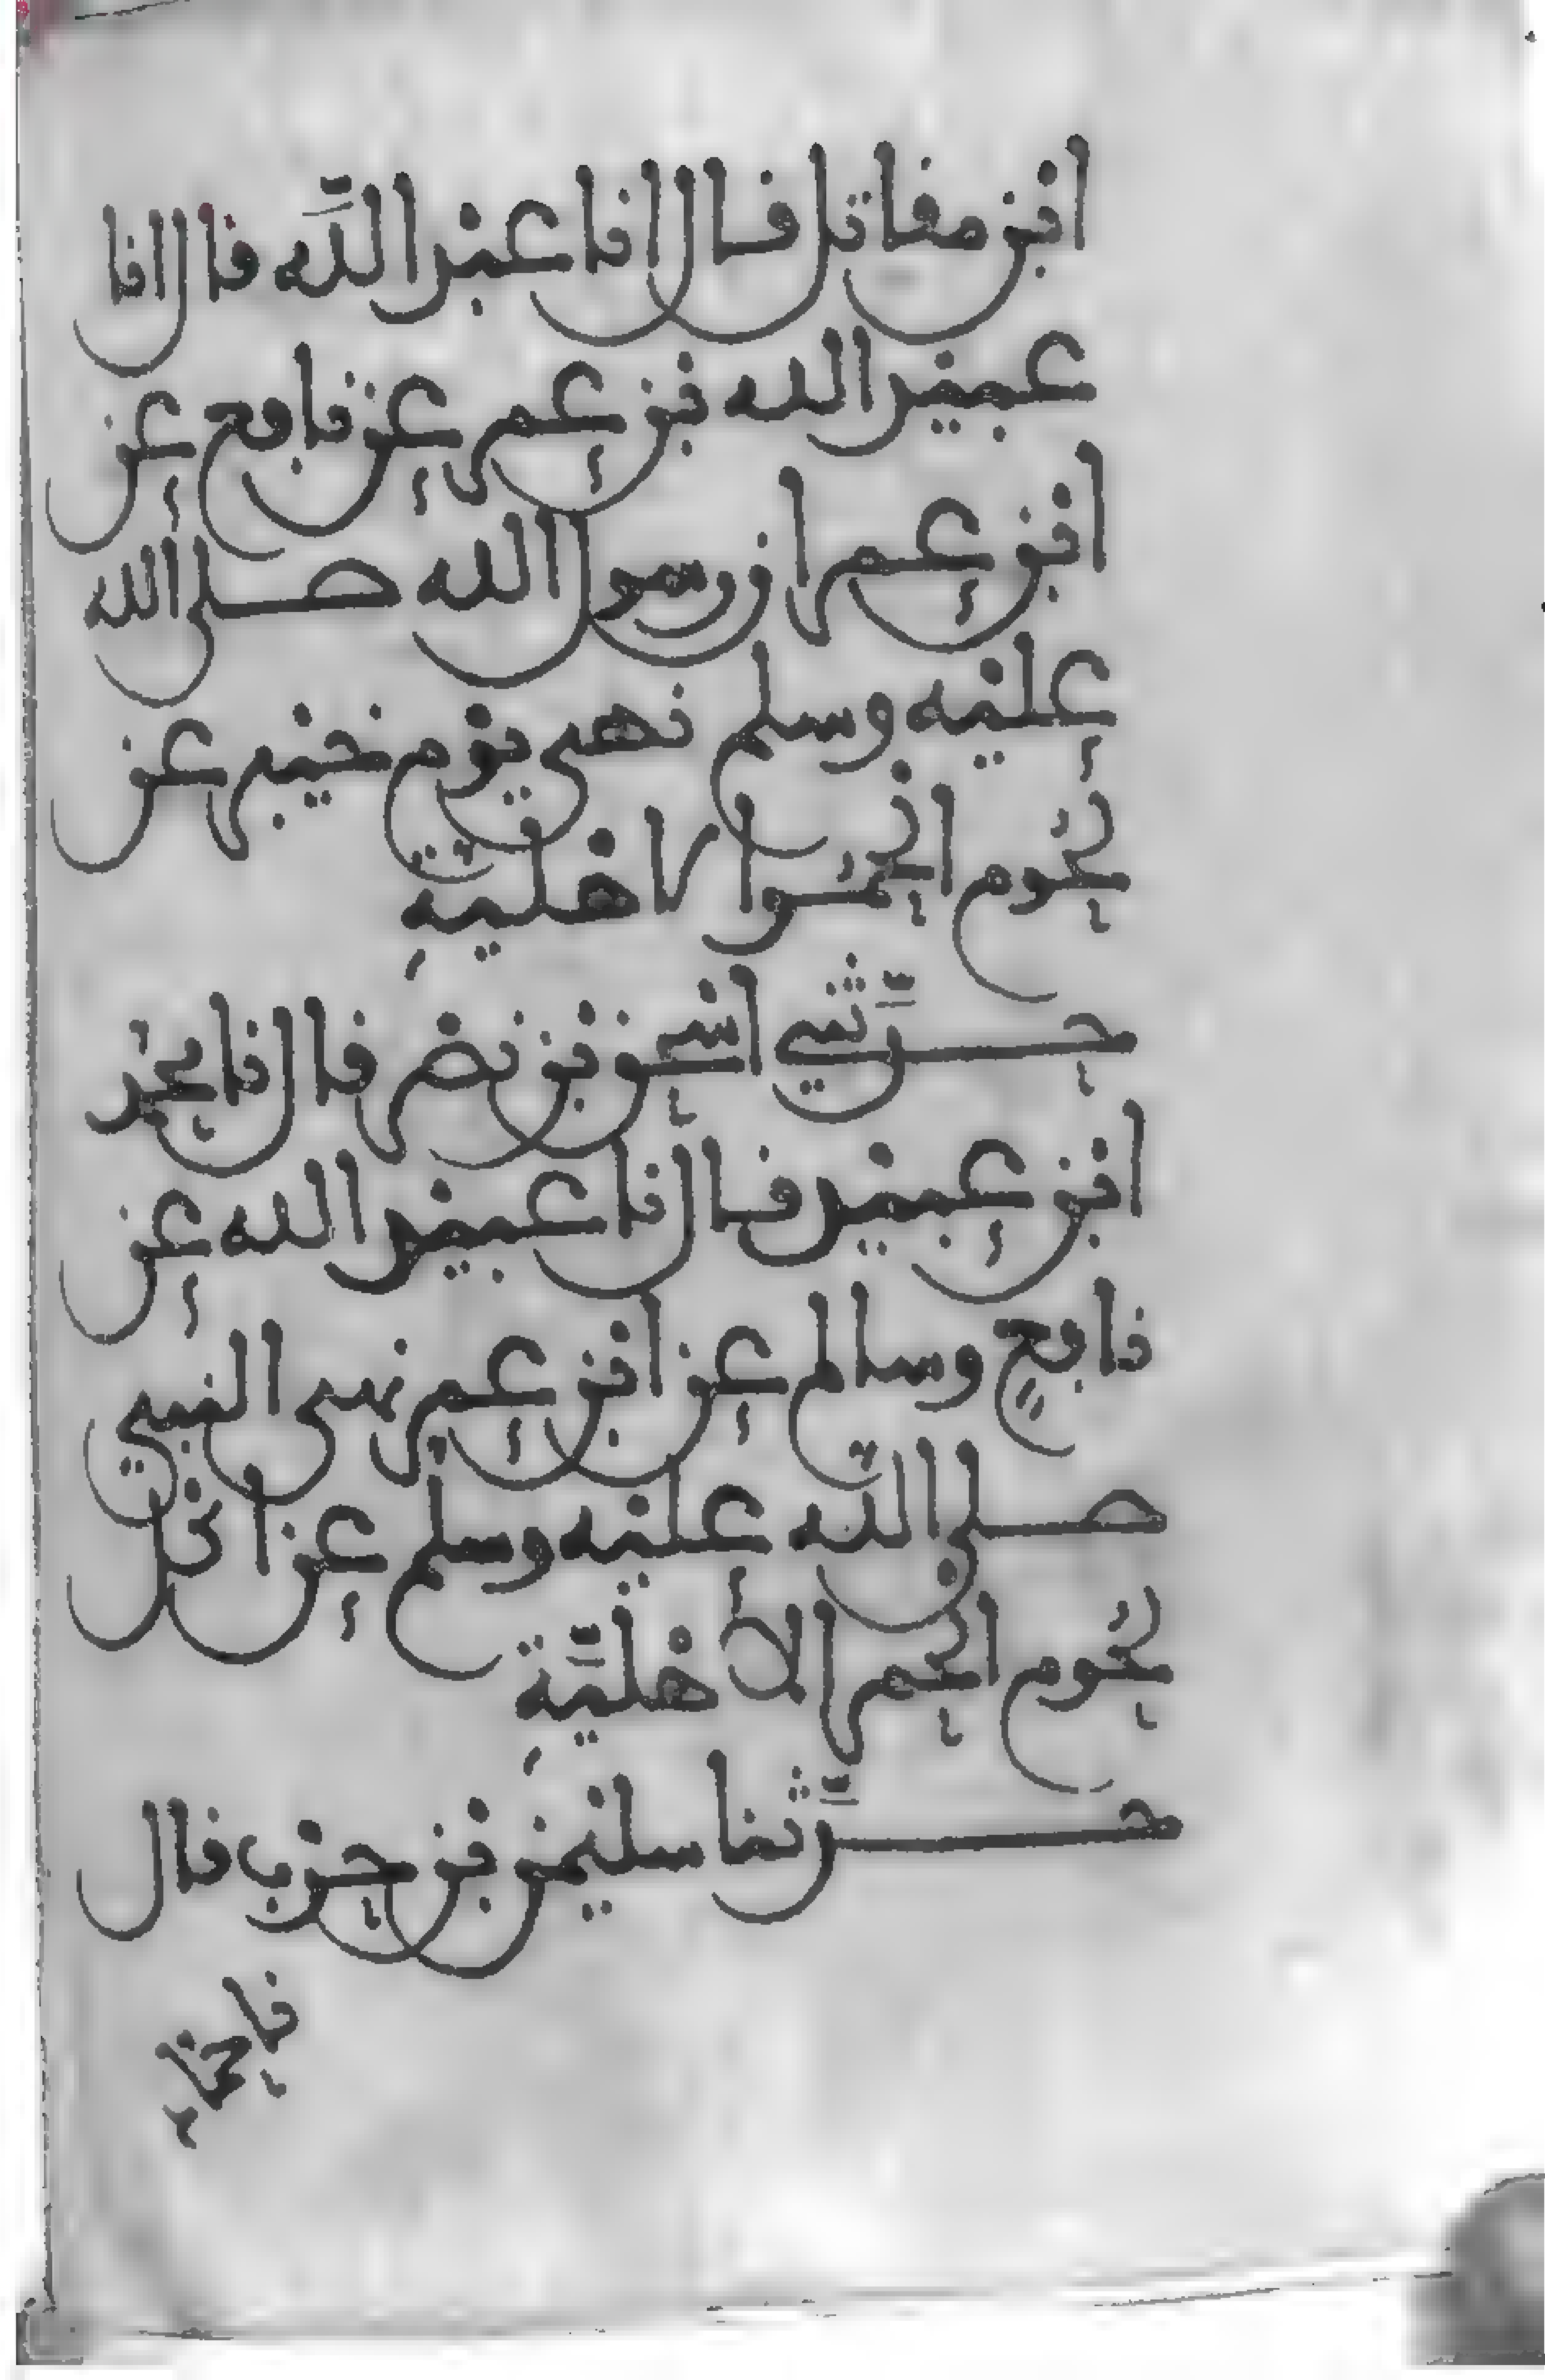 ابن مقاتل قال انا عبد اللَّه قال انا
عبيد الله بن عمر عن نافع عن
ابن عمر ان رسول الله صلى الله
عليه وسلم نهى يوم خيبر عن
لحُوم الحمر الاهليةِ
حدَّثني اسحق بن نصر قال نا محمد
ابن عبيد قال نا عبيد الله عن
نافعٍ وسالم عن ابن عمر نهى النبي
صلى الله عليه وسلم عن اكل
لحُوم الحمر الاهليَّةِ
حدَّثنا سليمن بن حرب قال
نا حماد